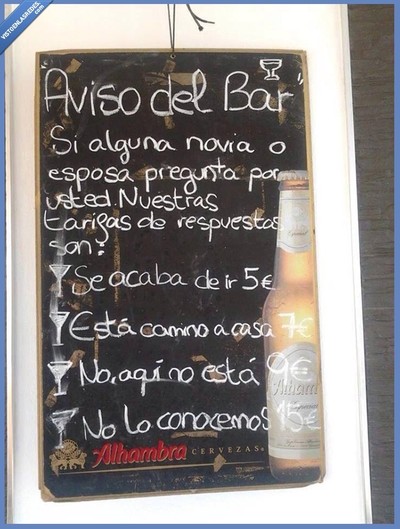 VISTOENLASREDES
.com
"Aviso del Bar"
Si alguna novia o
esposa pregunta por
usted. Nuestras
tarifas de respuestas
son:
Se acaba de ir 5€
Está camino a casa 7€
No, aquí no está 9€
No lo conocemos 15€
Alhambra CERVEZAS